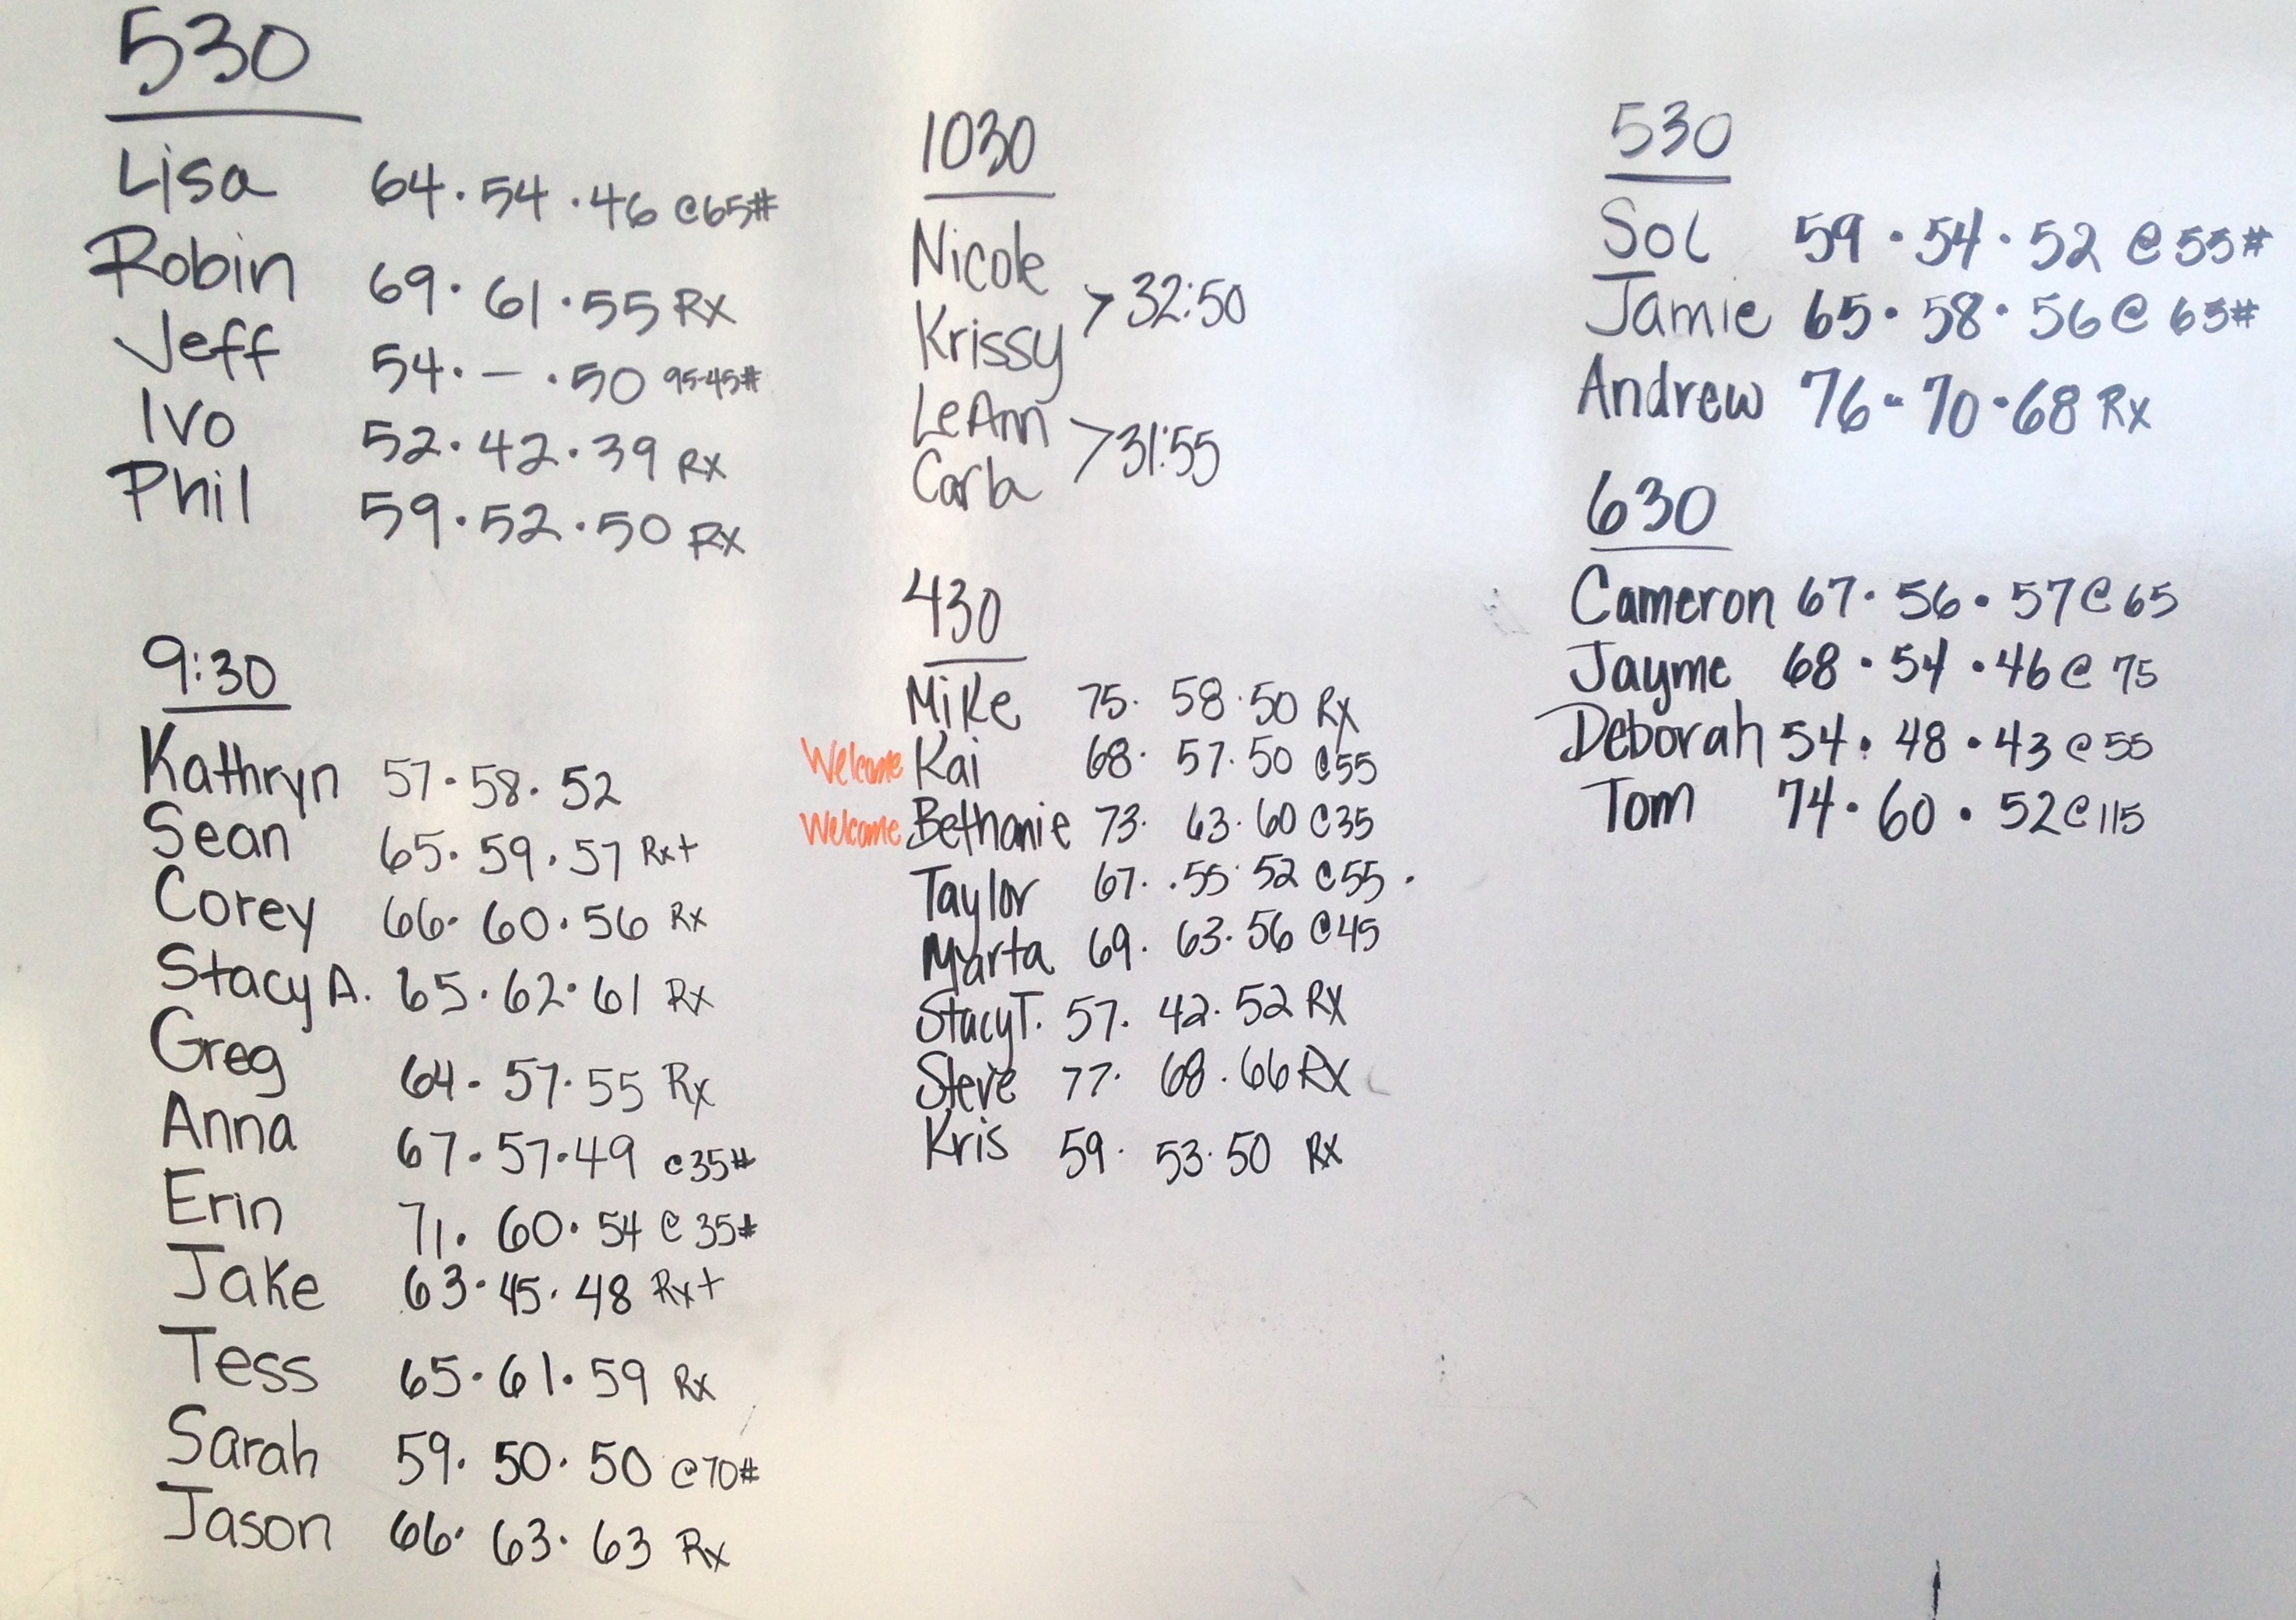 530
Lisa 64 · 54 · 46 @65#
Robin 69 · 61 · 55 Rx
Jeff 54 · – · 50 95-45#
Ivo 52 · 42 · 39 Rx
Phil 59 · 52 · 50 Rx
9:30
Kathryn 57 · 58 · 52
Sean 65 · 59 · 57 Rx+
Corey 66 · 60 · 56 Rx
Stacy A. 65 · 62 · 61 Rx
Greg 64 · 57 · 55 Rx
Anna 67 · 57 · 49 @35#
Erin 71 · 60 · 54 @ 35#
Jake 63 · 45 · 48 Rx+
Tess 65 · 61 · 59 Rx
Sarah 59 · 50 · 50 @70#
Jason 66 · 63 · 63 Rx
1030
Nicole
Krissy > 32:50
LeAnn
Carla > 31:55
430
Mike 75 · 58 · 50 Rx
Welcome Kai 68 · 57 · 50 @55
Welcome Bethanie 73 · 63 · 60 @35
Taylor 67 · 55 · 52 @55
Marta 69 · 63 · 56 @45
Stacy T. 57 · 42 · 52 Rx
Steve 77 · 68 · 66 Rx
Kris 59 · 53 · 50 Rx
530
Sol 59 · 54 · 52 @ 55#
Jamie 65 · 58 · 56 @ 65#
Andrew 76 · 70 · 68 Rx
630
Cameron 67 · 56 · 57 @ 65
Jayme 68 · 54 · 46 @ 75
Deborah 54 · 48 · 43 @ 55
Tom 74 · 60 · 52 @ 115